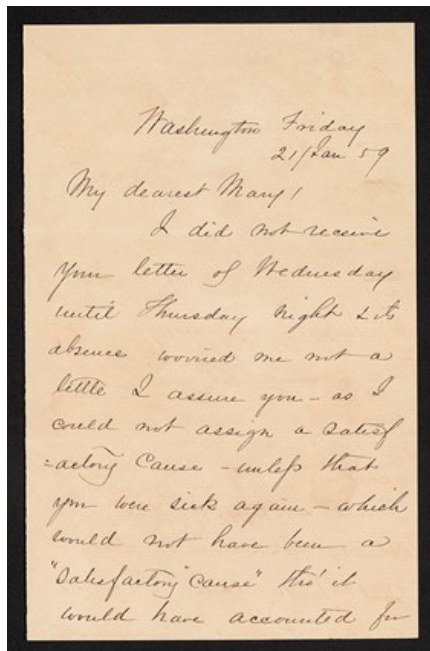 Washington Friday
21/Jan 59
My dearest Mary!
I did not receive
your letter of Wednesday
until Thursday night & its
absence worried me not a
little I assure you - as I
could not assign a satisf
=actory Cause - unless that
you were sick again - which
would not have been a
"Satisfactory Cause" tho' it
would have accounted for